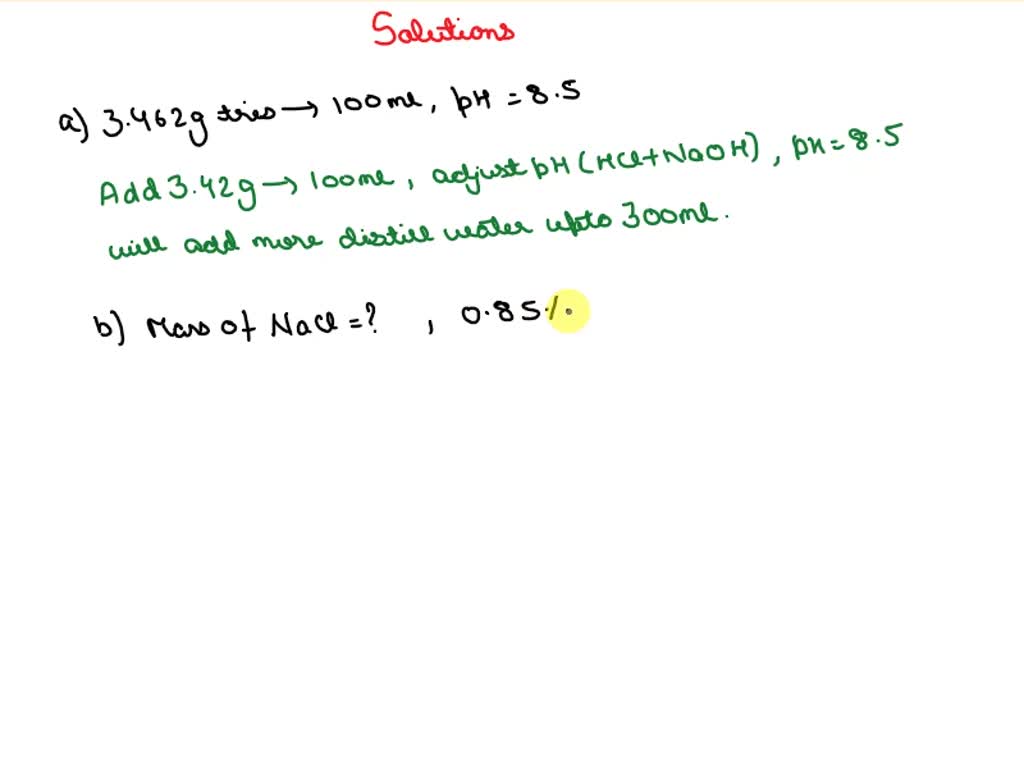 Solutions
a) 3.462g tris → 100ml, pH = 8.5
Add 3.42g → 100ml, adjust pH (HCl + NaOH), pH = 8.5
will add more distill water upto 300ml.
b) Mass of NaCl = ? , 0.85%